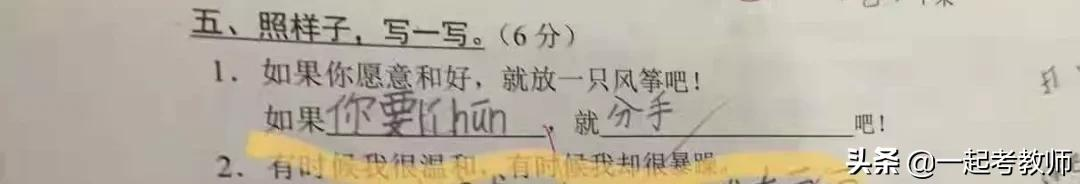 五、照样子，写一写。（6分）
1．如果你愿意和好，就放一只风筝吧！
如果你要lí hūn，就分手吧！
2．有时候我很温和，有时候我却很暴躁。
头条 @一起考教师